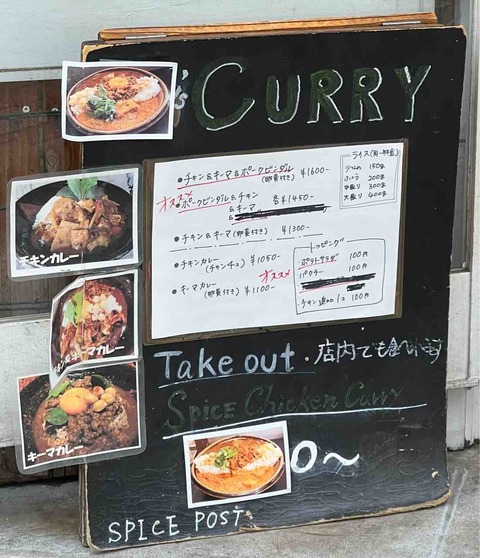 's CURRY
• チキン&キーマ&ポークビンダル
(卵黄付き) ¥1600-
オススメ
• ポークビンダル&チキン
&キーマ
各¥1450-
&
• チキン&キーマ(卵黄付き) ¥1300-
• チキンカレー
(チキンチュ) ¥1050-
• キーマカレー
(卵黄付き) ¥1100-
オススメ
ライス(同一料金)
少なめ 150g
ふつう 200g
中盛り 300g
大盛り 400g
トッピング
ポテトサラダ 100円
パクチー 100円
チキン 追加 1コ 100円
チキンカレー
キーマカレー
キーマカレー
Take out・店内でも
Spice Chicken Curry
0〜
SPICE POST